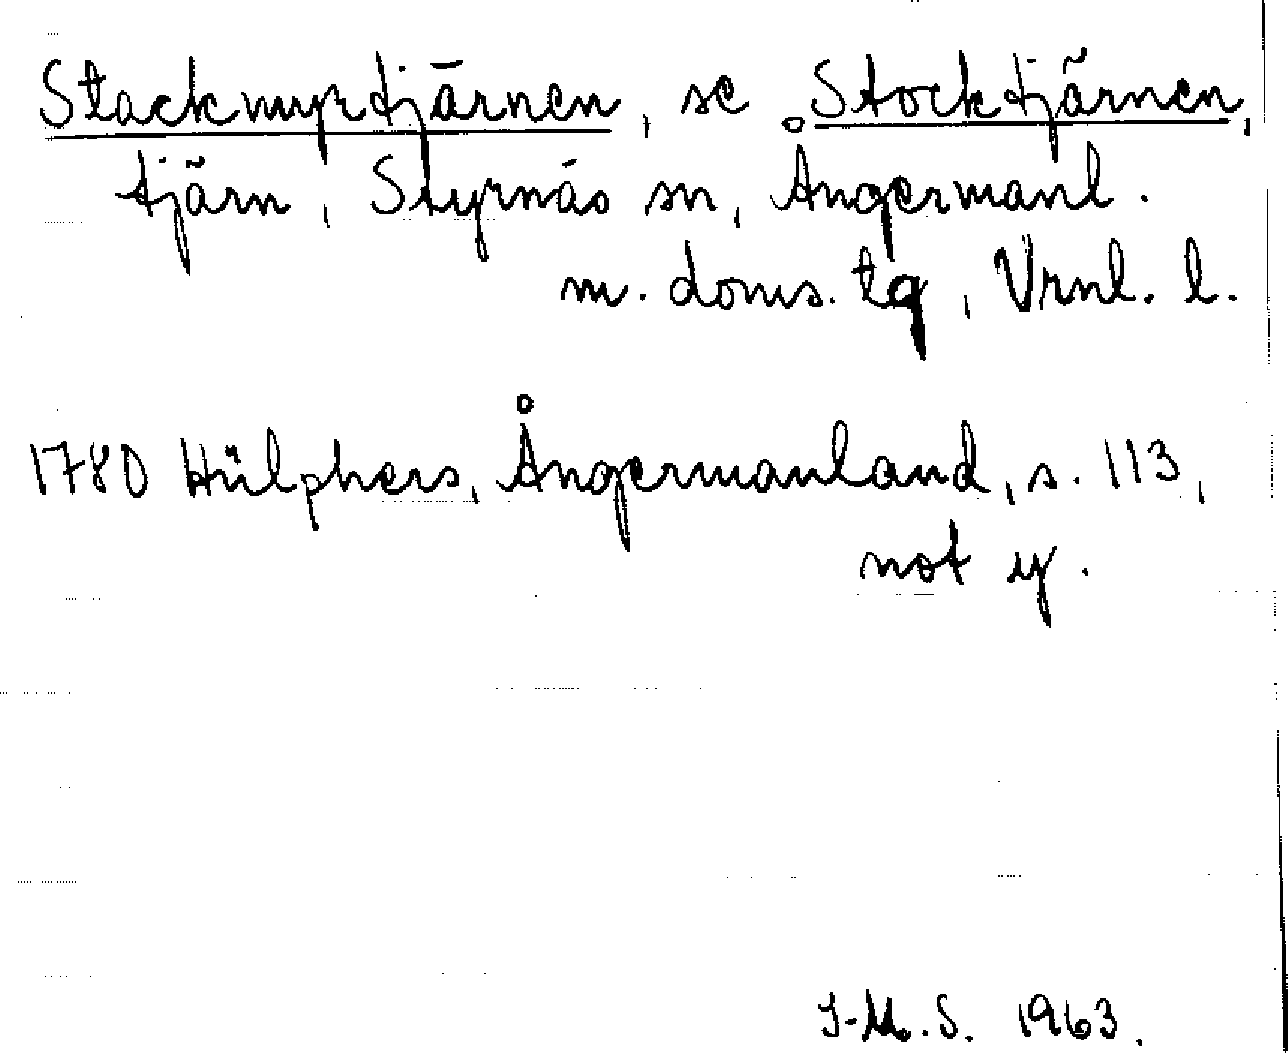 Stackmyrtjärnen, se Stocktjärnen,
tjärn, Styrnäs sn, Ångermanl.
m. doms. tg, Vrnl. l.
1780 Hülphers, Ångermanland, s. 113,
not y.
I-M.S. 1963.